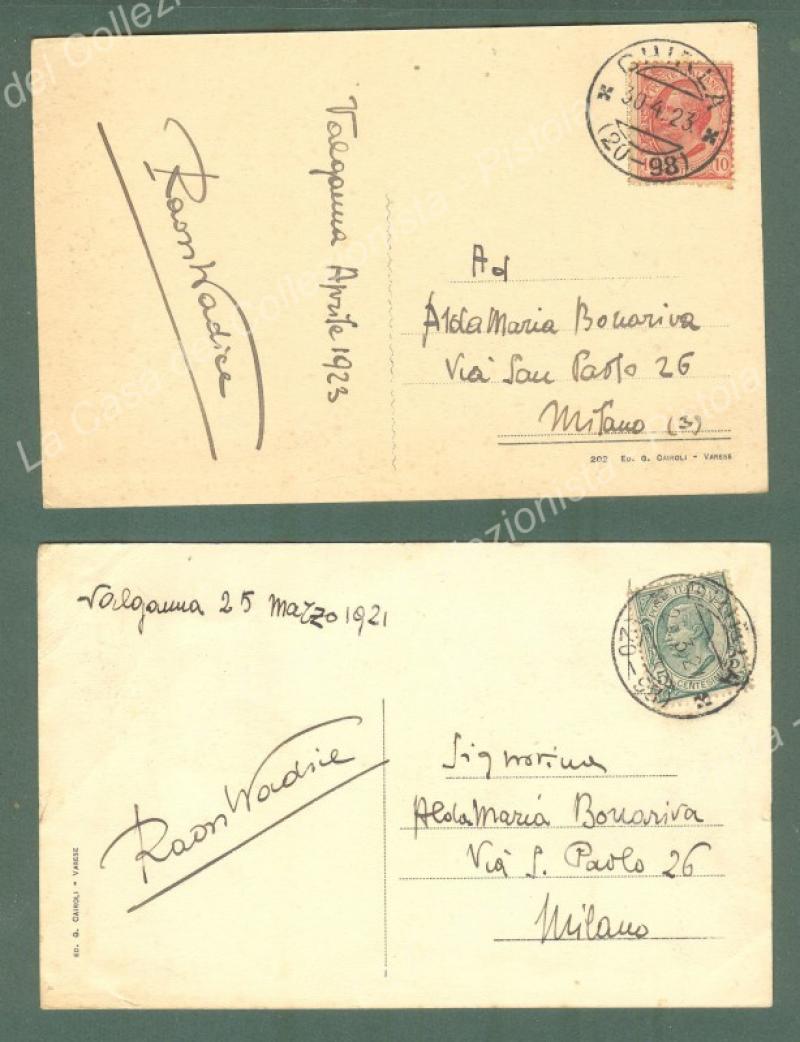 GHIRLA
30.4.23
(20-98)
10
Valganna Aprile 1923
RaonWadice
Ad
AldaMaria Bonariva
Via San Paolo 26
Milano (3)
202 ED. G. CAIROLI - VARESE
Valganna 25 Marzo 1921
CENTESIMI
RaonWadice
Signorina
AldaMaria Bonariva
Via S. Paolo 26
Milano
ED. G. CAIROLI - VARESE
La Casa del Collezionista - Pistoia